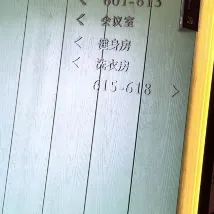 < 601-613
< 会议室
< 健身房
< 洗衣房
615-618 >